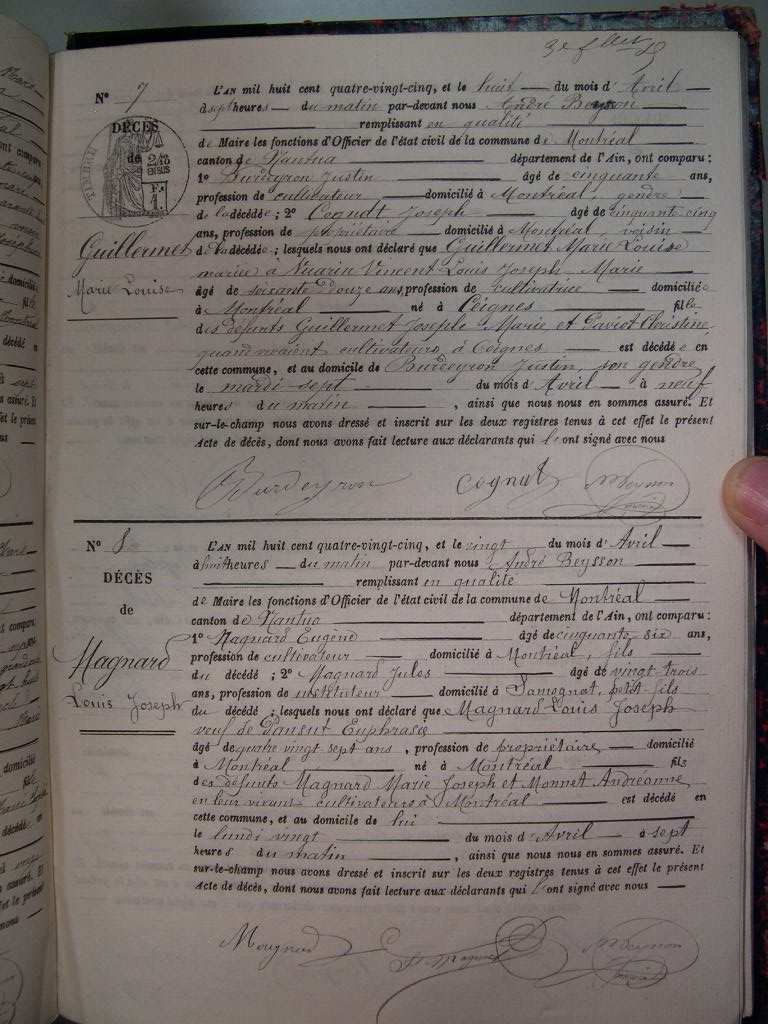 N° 7
L'AN mil huit cent quatre-vingt-cinq, et le huit du mois d'Avril
à sept heures du matin par-devant nous André Beysson
remplissant en qualité
de Maire les fonctions d'Officier de l'état civil de la commune de Montréal
canton de Nantua département de l'Ain, ont comparu :
1° Burdeyron Justin âgé de cinquante ans,
profession de cultivateur domicilié à Montréal, gendre
de la décédée ; 2° Joseph âgé de cinquante cinq
ans, profession de propriétaire domicilié à Montréal, voisin
de la décédée ; lesquels nous ont déclaré que Guillermet Marie Louise
mariée à Vincent Louis Joseph Marie
âgé de soixante douze ans, profession de cultivatrice domiciliée
à Montréal né à Ceignes fille
des défunts Guillermet Joseph Marie et Christine
quand vivaient cultivateurs à Ceignes est décédée en
cette commune, et au domicile de Burdeyron Justin, son gendre
le mardi sept du mois d'Avril à neuf
heures du matin , ainsi que nous nous en sommes assuré. Et
sur-le-champ nous avons dressé et inscrit sur les deux registres tenus à cet effet le présent
Acte de décès, dont nous avons fait lecture aux déclarants qui l'ont signé avec nous
DÉCÈS
de
Guillermet
Marie Louise
Burdeyron Cognat
N° 8
L'AN mil huit cent quatre-vingt-cinq, et le vingt du mois d'Avril
à huit heures du matin par-devant nous André Beysson
remplissant en qualité
de Maire les fonctions d'Officier de l'état civil de la commune de Montréal
canton de Nantua département de l'Ain, ont comparu :
1° Magnard Eugène âgé de cinquante six ans,
profession de cultivateur domicilié à Montréal, fils
du décédé ; 2° Magnard Jules âgé de vingt trois
ans, profession de instituteur domicilié à Samognat, petit-fils
du décédé ; lesquels nous ont déclaré que Magnard Louis Joseph
veuf de Euphrasie
âgé de quatre vingt sept ans , profession de propriétaire domicilié
à Montréal né à Montréal fils
des défunts Magnard Marie Joseph et Monnet Andréanne
en leur vivant cultivateurs à Montréal est décédé en
cette commune, et au domicile de lui
le lundi vingt du mois d'Avril à sept
heures du matin , ainsi que nous nous en sommes assuré. Et
sur-le-champ nous avons dressé et inscrit sur les deux registres tenus à cet effet le présent
Acte de décès, dont nous avons fait lecture aux déclarants qui l'ont signé avec nous
DÉCÈS
de
Magnard
Louis Joseph